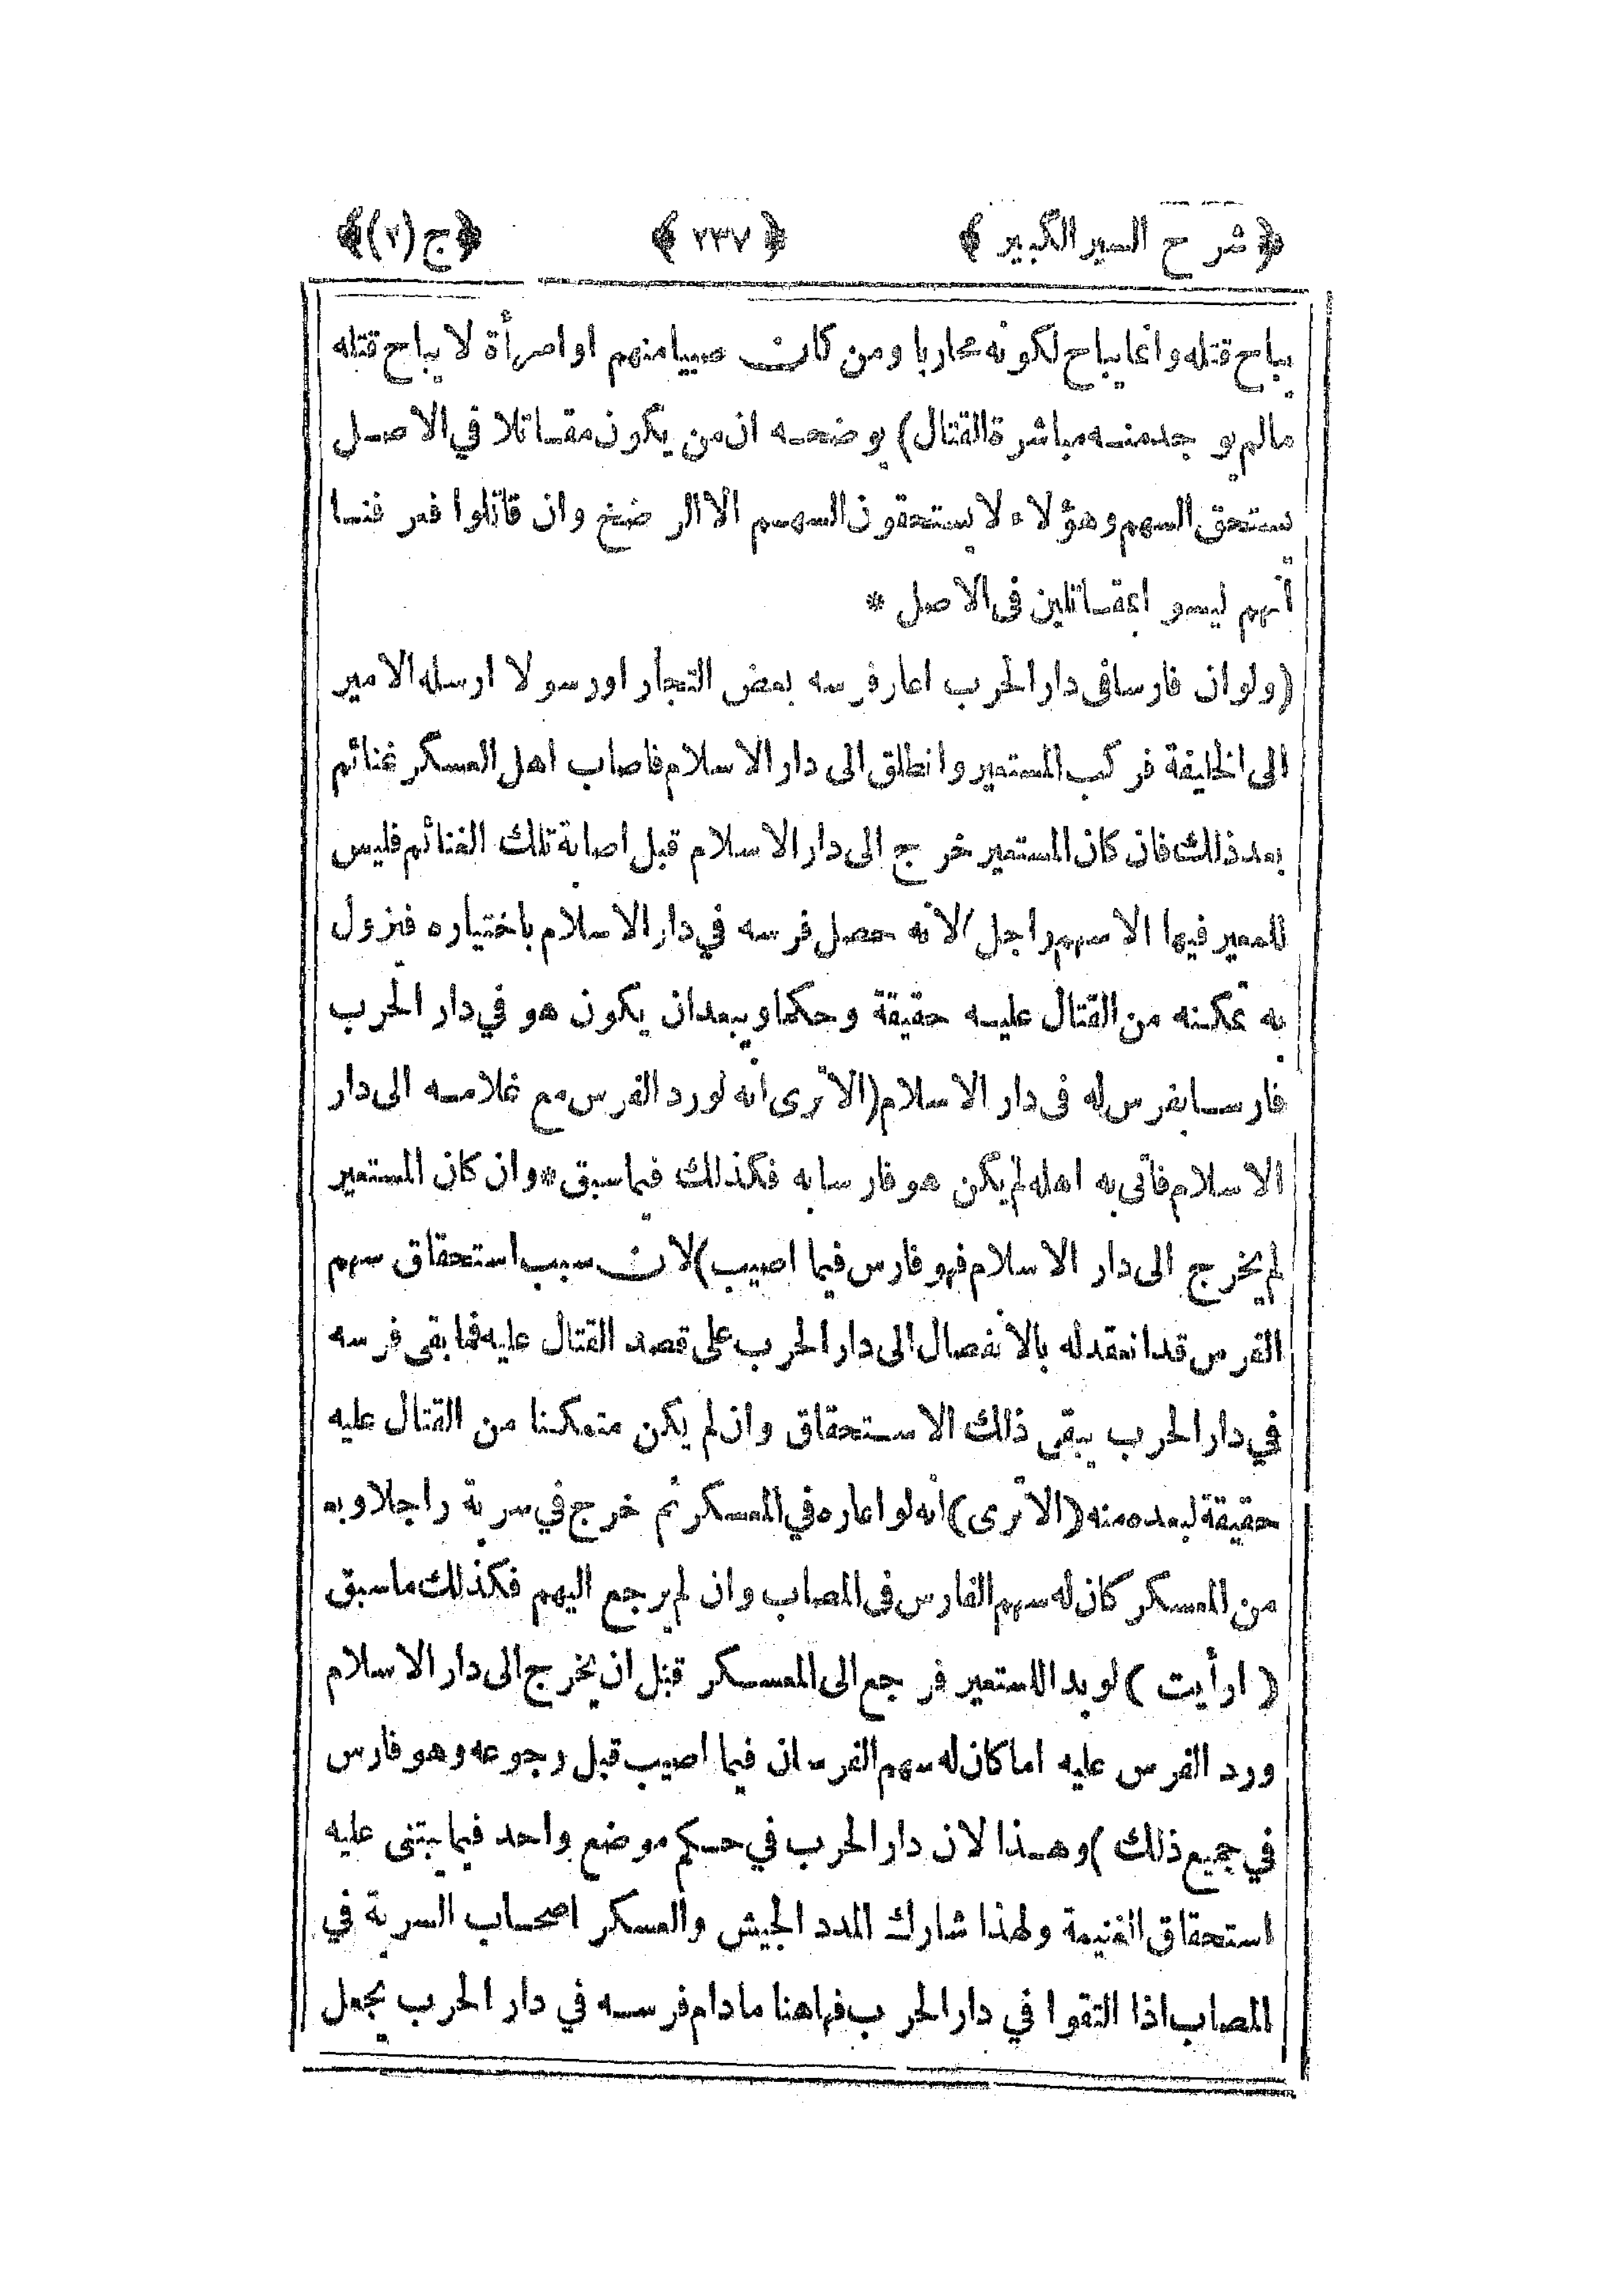 ﴿ شرح السير الكبير ﴾ ﴿ ٢٣٧ ﴾ ﴿ ج (٢) ﴾
يباح قتله وانما يباح لكونه محاربا ومن كان صبيا منهم او امرأة لا يباح قتله
مالم يوجد منه مباشرة القتال) يوضحه ان من يكون مقاتلا في الاصل
يستحق السهم وهؤلاء لا يستحقون السهم الا الرضخ وان قاتلوا فعرفنا
أنهم ليسوا بمقاتلين فى الاصل *
(ولو ان فارسا فى دار الحرب اعار فرسه بعض التجار اورسولا ارسله الامير
الى الخليفة فركب المستعير وانطلق الى دار الاسلام فاصاب اهل العسكر غنائم
بعد ذلك فان كان المستعير خرج الى دار الاسلام قبل اصابة تلك الغنائم فليس
للمعير فيها الا سهم راجل) لانه حصل فرسه في دار الاسلام باختياره فيزول
به تمكنه من القتال عليه حقيقة وحكما ويبعد ان يكون هو في دار الحرب
فارسا بفرس له فى دار الاسلام (الا ترى أنه لو رد الفرس مع غلامه الى دار
الاسلام فأتى به اهله لم يكن هو فارسا به فكذلك فيما سبق * وان كان المستعير
لم يخرج الى دار الاسلام فهو فارس فيما اصيب) لان سبب استحقاق سهم
الفرس قد انعقد له بالانفصال الى دار الحرب على قصد القتال عليه فما بقى فرسه
في دار الحرب يبقى ذلك الاستحقاق وان لم يكن متمكنا من القتال عليه
حقيقة لبعده منه (الا ترى) أنه لو اعاره في المعسكر ثم خرج في سرية راجلا وبعد
من المعسكر كان له سهم الفارس فى المصاب وان لم يرجع اليهم فكذلك ما سبق
(ارأيت) لو بدا للمستعير فرجع الى المعسكر قبل ان يخرج الى دار الاسلام
ورد الفرس عليه اما كان له سهم الفرسان فيما اصيب قبل رجوعه وهو فارس
في جميع ذلك) وهذا لان دار الحرب في حكم موضع واحد فيما يبتنى عليه
استحقاق الغنيمة ولهذا شارك المدد الجيش والعسكر اصحاب السرية في
المصاب اذا التقوا في دار الحرب فهاهنا مادام فرسه في دار الحرب يجعل